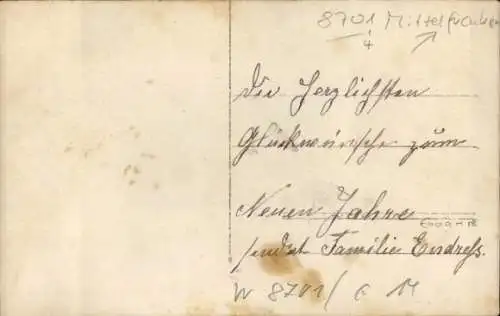 8701 Mittelfranken
4
Die Herzlichsten
Glückwünsche zum
Neuen Jahre
sendet Familie Endreß.
W 8701/